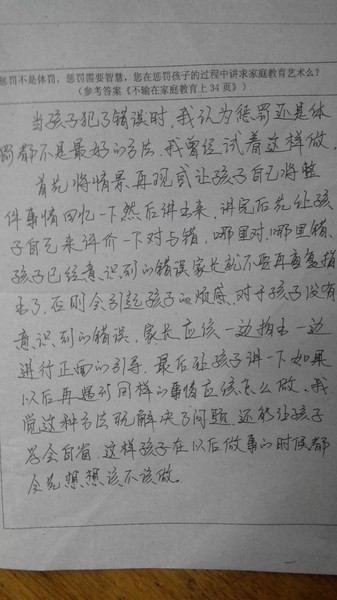 惩罚不是体罚，惩罚需要智慧，您在惩罚孩子的过程中讲求家庭教育艺术么？
（参考答案《不输在家庭教育上34页》）
当孩子犯了错误时，我认为惩罚还是体
罚都不是最好的方法，我曾经试着这样做，
首先将情景再现或让孩子自己将整
件事情回忆一下然后讲出来，讲完后先让孩
子自己来评价一下对与错，哪里对，哪里错，
孩子已经意识到的错误家长就不要再重复指
出了，否则会引起孩子的烦感，对于孩子没有
意识到的错误，家长应该一边指出一边
进行正面的引导，最后让孩子讲一下如果
以后再遇到同样的事情应该怎么做，我
觉这种方法既解决了问题，还能让孩子
学会自省，这样孩子在以后做事的时候都
会先想想该不该做。